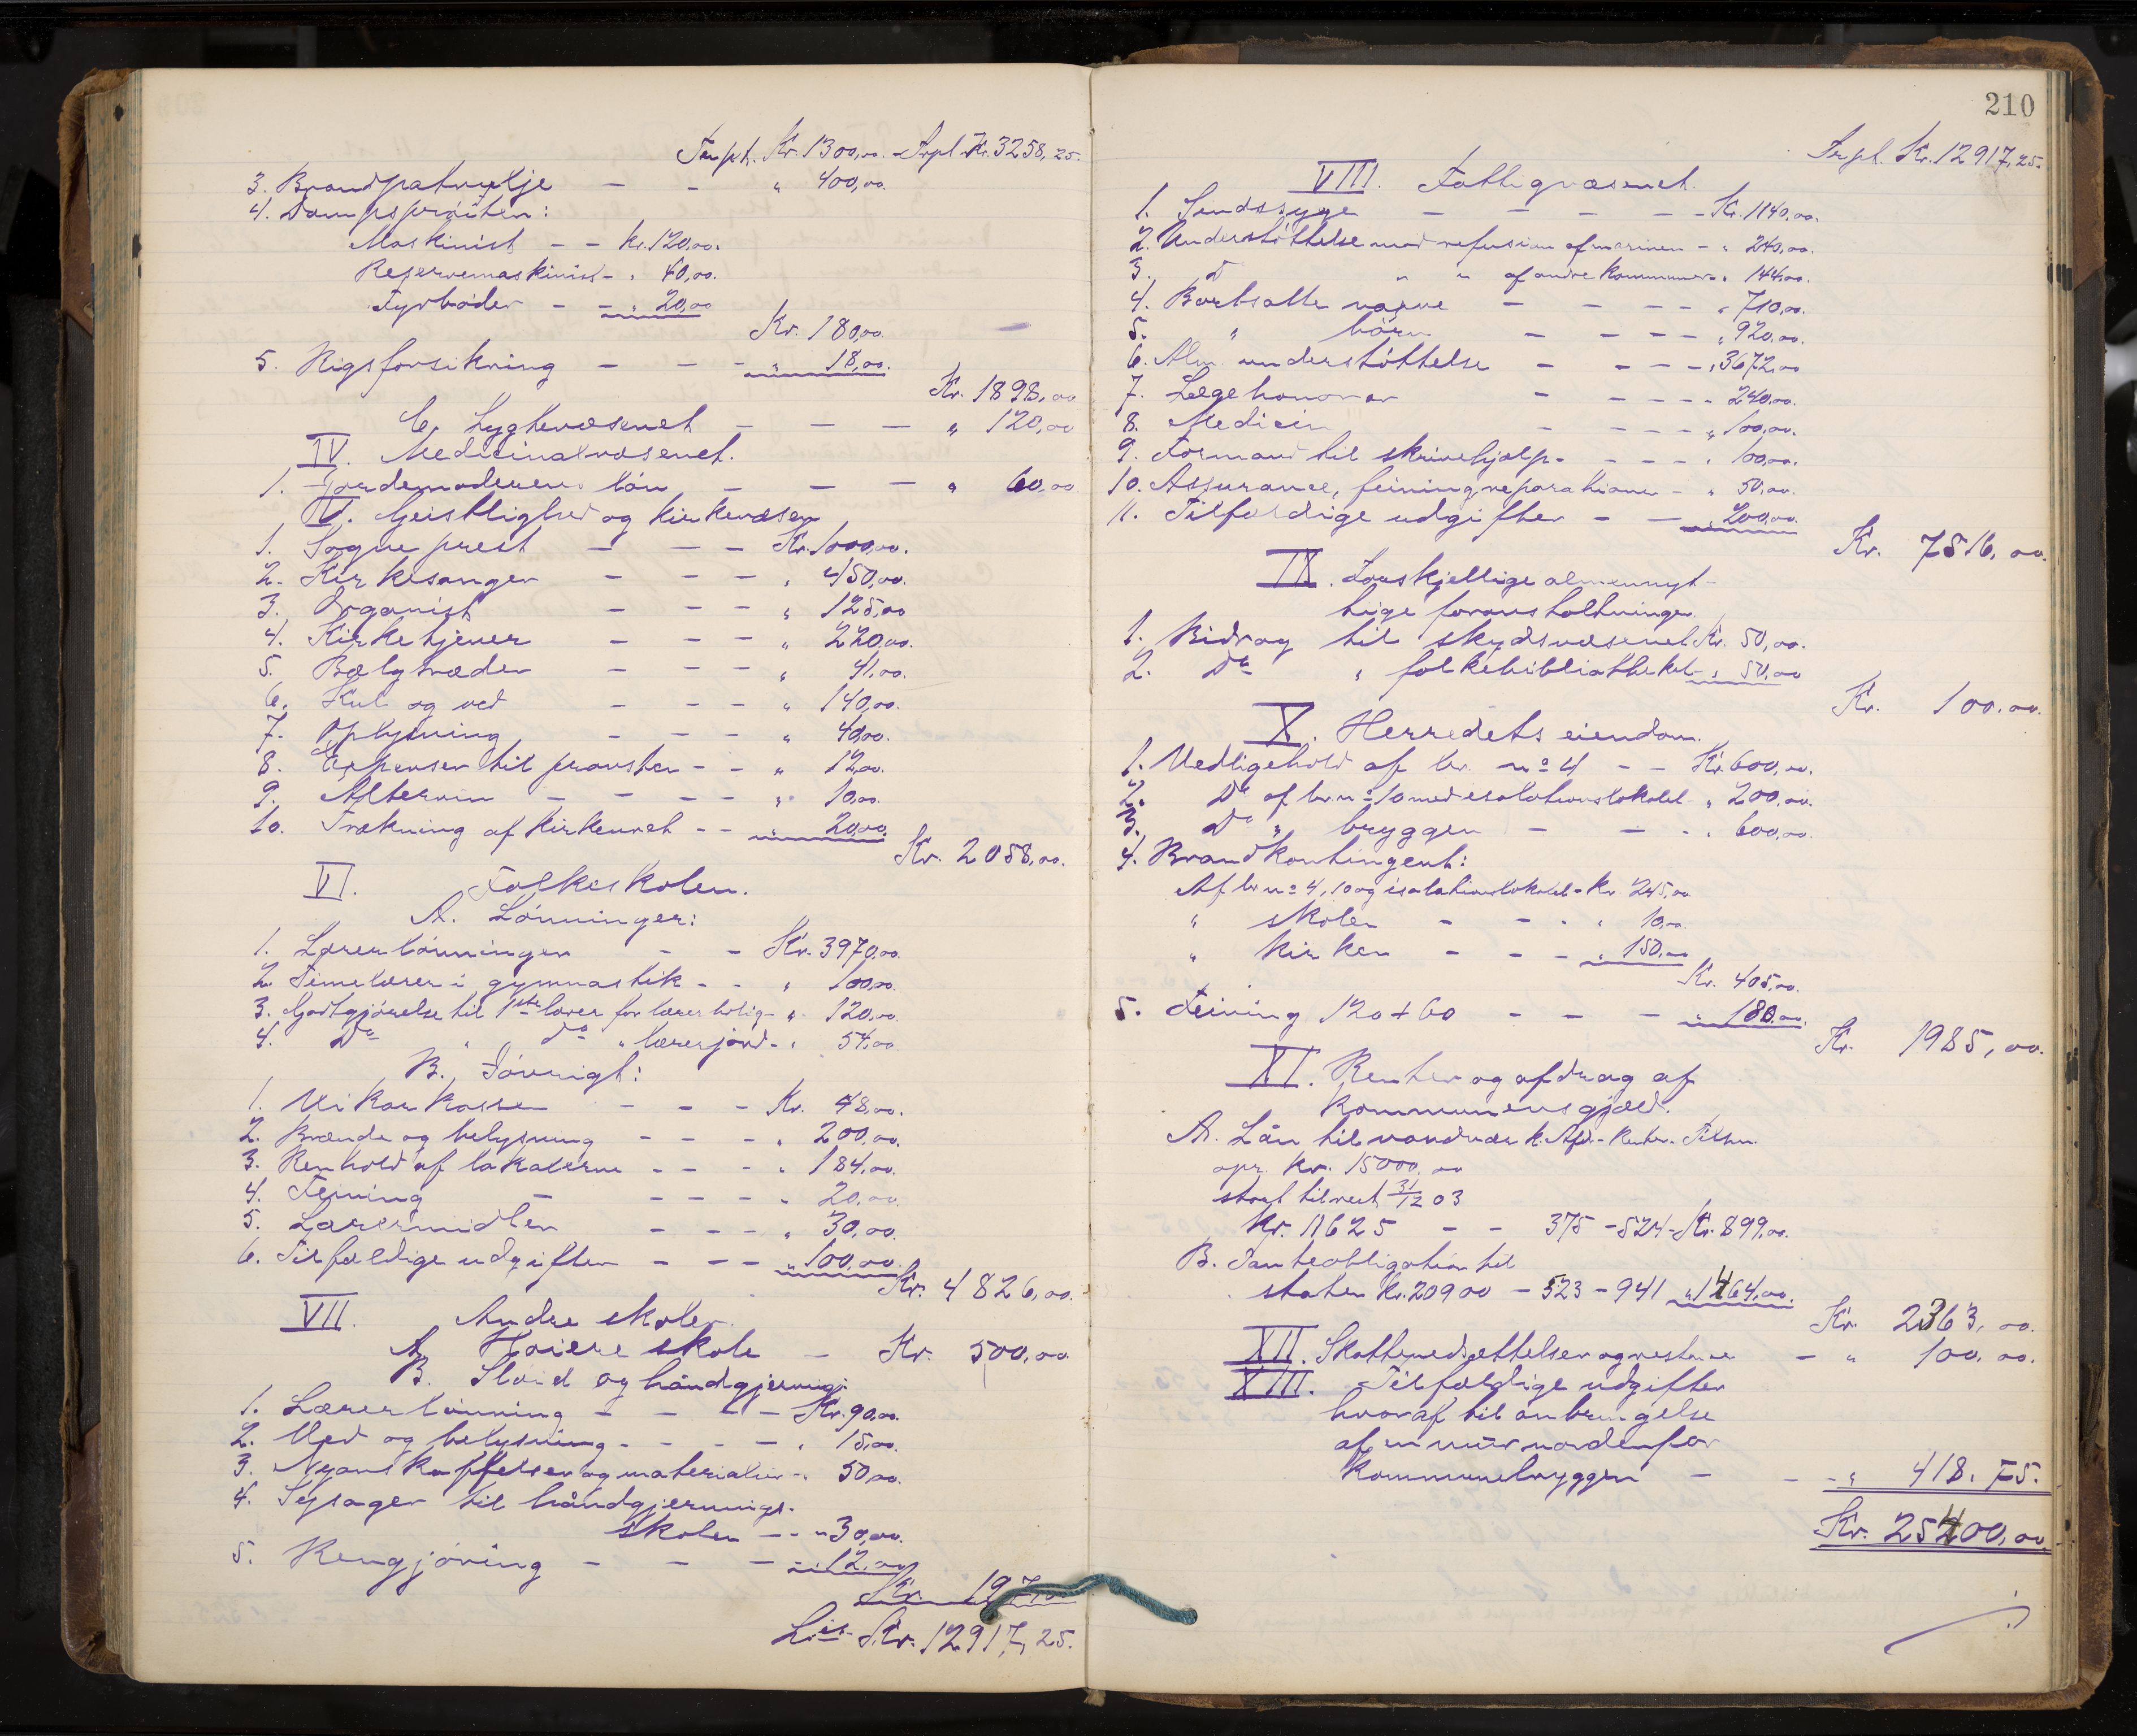 Trspt. Kr. 1300,00. - Trspt. Kr. 3258,25.
3. Brandpatrulje - - " 400,00.
4. Dampsprøiten:
Maskinist - - Kr. 120,00.
Reservemaskinist - " 40,00.
Fyrbøder - - " 20,00
Kr. 180,00.
5. Rigsforsikring - - - " 18,00.
Kr. 1898,00
C. Lygtevæsenet - - - " 120,00
IV. Medicinalvæsenet.
1. Jordemoderens løn - - - " 60,00
V. Geistlighed og kirkevæsen
1. Sogneprest - - - Kr. 1000,00.
2. Kirkesanger - - - " 450,00.
3. Organist - - - " 125,00
4. Kirketjener - - - " 220,00.
5. Bælgtræder - - - " 41,00.
6. Kul og ved - - - " 140,00.
7. Oplysning - - - " 40,00.
8. Expenser til provsten - - " 12,00.
9. Altervin - - - - " 10,00.
10. Trækning af kirkeuret - - " 20,00.
Kr. 2058,00.
VI. Folkeskolen.
A. Lønninger:
1. Lærerlønningen - - Kr. 3970,00.
2. Timelærer i gymnastik - - " 100,00.
3. Godtgjørelse til 1ste lærer for lærerbolig - " 120,00
4. Do " do " lærerjord - " 54,00
B. Iøvrigt:
1. Vikarkassen - - - Kr. 48,00.
2. Brænde og belysning - - - " 200,00.
3. Renhold af lokalerne - - - " 184,00.
4. Feining - - - - " 20,00.
5. Læremidler - - - " 30,00.
6. Tilfældige udgifter - - - " 100,00.
Kr. 4826,00.
VII. Andre skoler.
A. Høiere skole - Kr. 500,00
B. Sløid og håndgjerning:
1. Lærerlønning - - - - Kr. 90,00.
2. Ved og belysning - - - - " 15,00.
3. Nyanskaffelser og materialier - " 50,00.
4. Sysager til håndgjernings-
skolen - - " 30,00.
5. Rengjøring - - - " 12,00
Kr. 197,00
Kr. 12917,25.
210
Trspt. Kr. 12917,25.
VIII. Fattigvæsenet.
1. Sindssyge - - - - - Kr. 1140,00.
2. Understøttelse med refusion af marinen - " 240,00.
3. Do " " af andre kommuner " 144,00.
4. Bortsatte voxne - - - - " 710,00.
5. " børn - - - - " 920,00.
6. Alm. understøttelse - - - - " 3672,00
7. Lægehonorar - - - - - 240,00.
8. Medicin - - - - " 100,00.
9. Formand til skrivehjælp - - - - " 100,00.
10. Assurance, feining, reparationer - " 50,00.
11. Tilfældige udgifter - - " 200,00.
Kr. 7516,00.
IX. Forskjellige almennyt-
tige foranstaltninger
1. Bidrag til skydsvæsenet Kr. 50,00.
2. Do " folkebibliotheket - " 50,00
Kr. 100.00.
X. Herredets eiendom.
1. Vedligehold af br. no 4 - - Kr. 600,00.
2. Do af br. no 10 med isolationslokalet " 200,00.
3. Do " bryggen - - - " 600,00.
4. Brandkontingent:
Af br. no 4, 10 og isolationslokalet - Kr. 245,00
" skolen - - - " 10,00
" kirken - - - " 150,00
Kr. 405,00.
5. Feining 120 + 60 - - - " 180.00.
Kr. 1985,00.
XI. Renter og afdrag af
kommunens gjæld.
A. Lån til vandværk. Afdr. - Renter. - Tilsm.
opr. kr. 15000,00
31/12 03
Kr. 11625 - - 375 - 524 - Kr. 899,00.
B. Panteobligation til
staten Kr. 20900 - 523 - 941 " 1464,00.
Kr. 2363,00.
XII. Skattenedsættelser og restancer - " 100,00.
XIII. Tilfældige udgifter
hvoraf til anbringelse
af en mur nordenfor
kommunebryggen - - - " 418.75.
Kr. 25400,00.